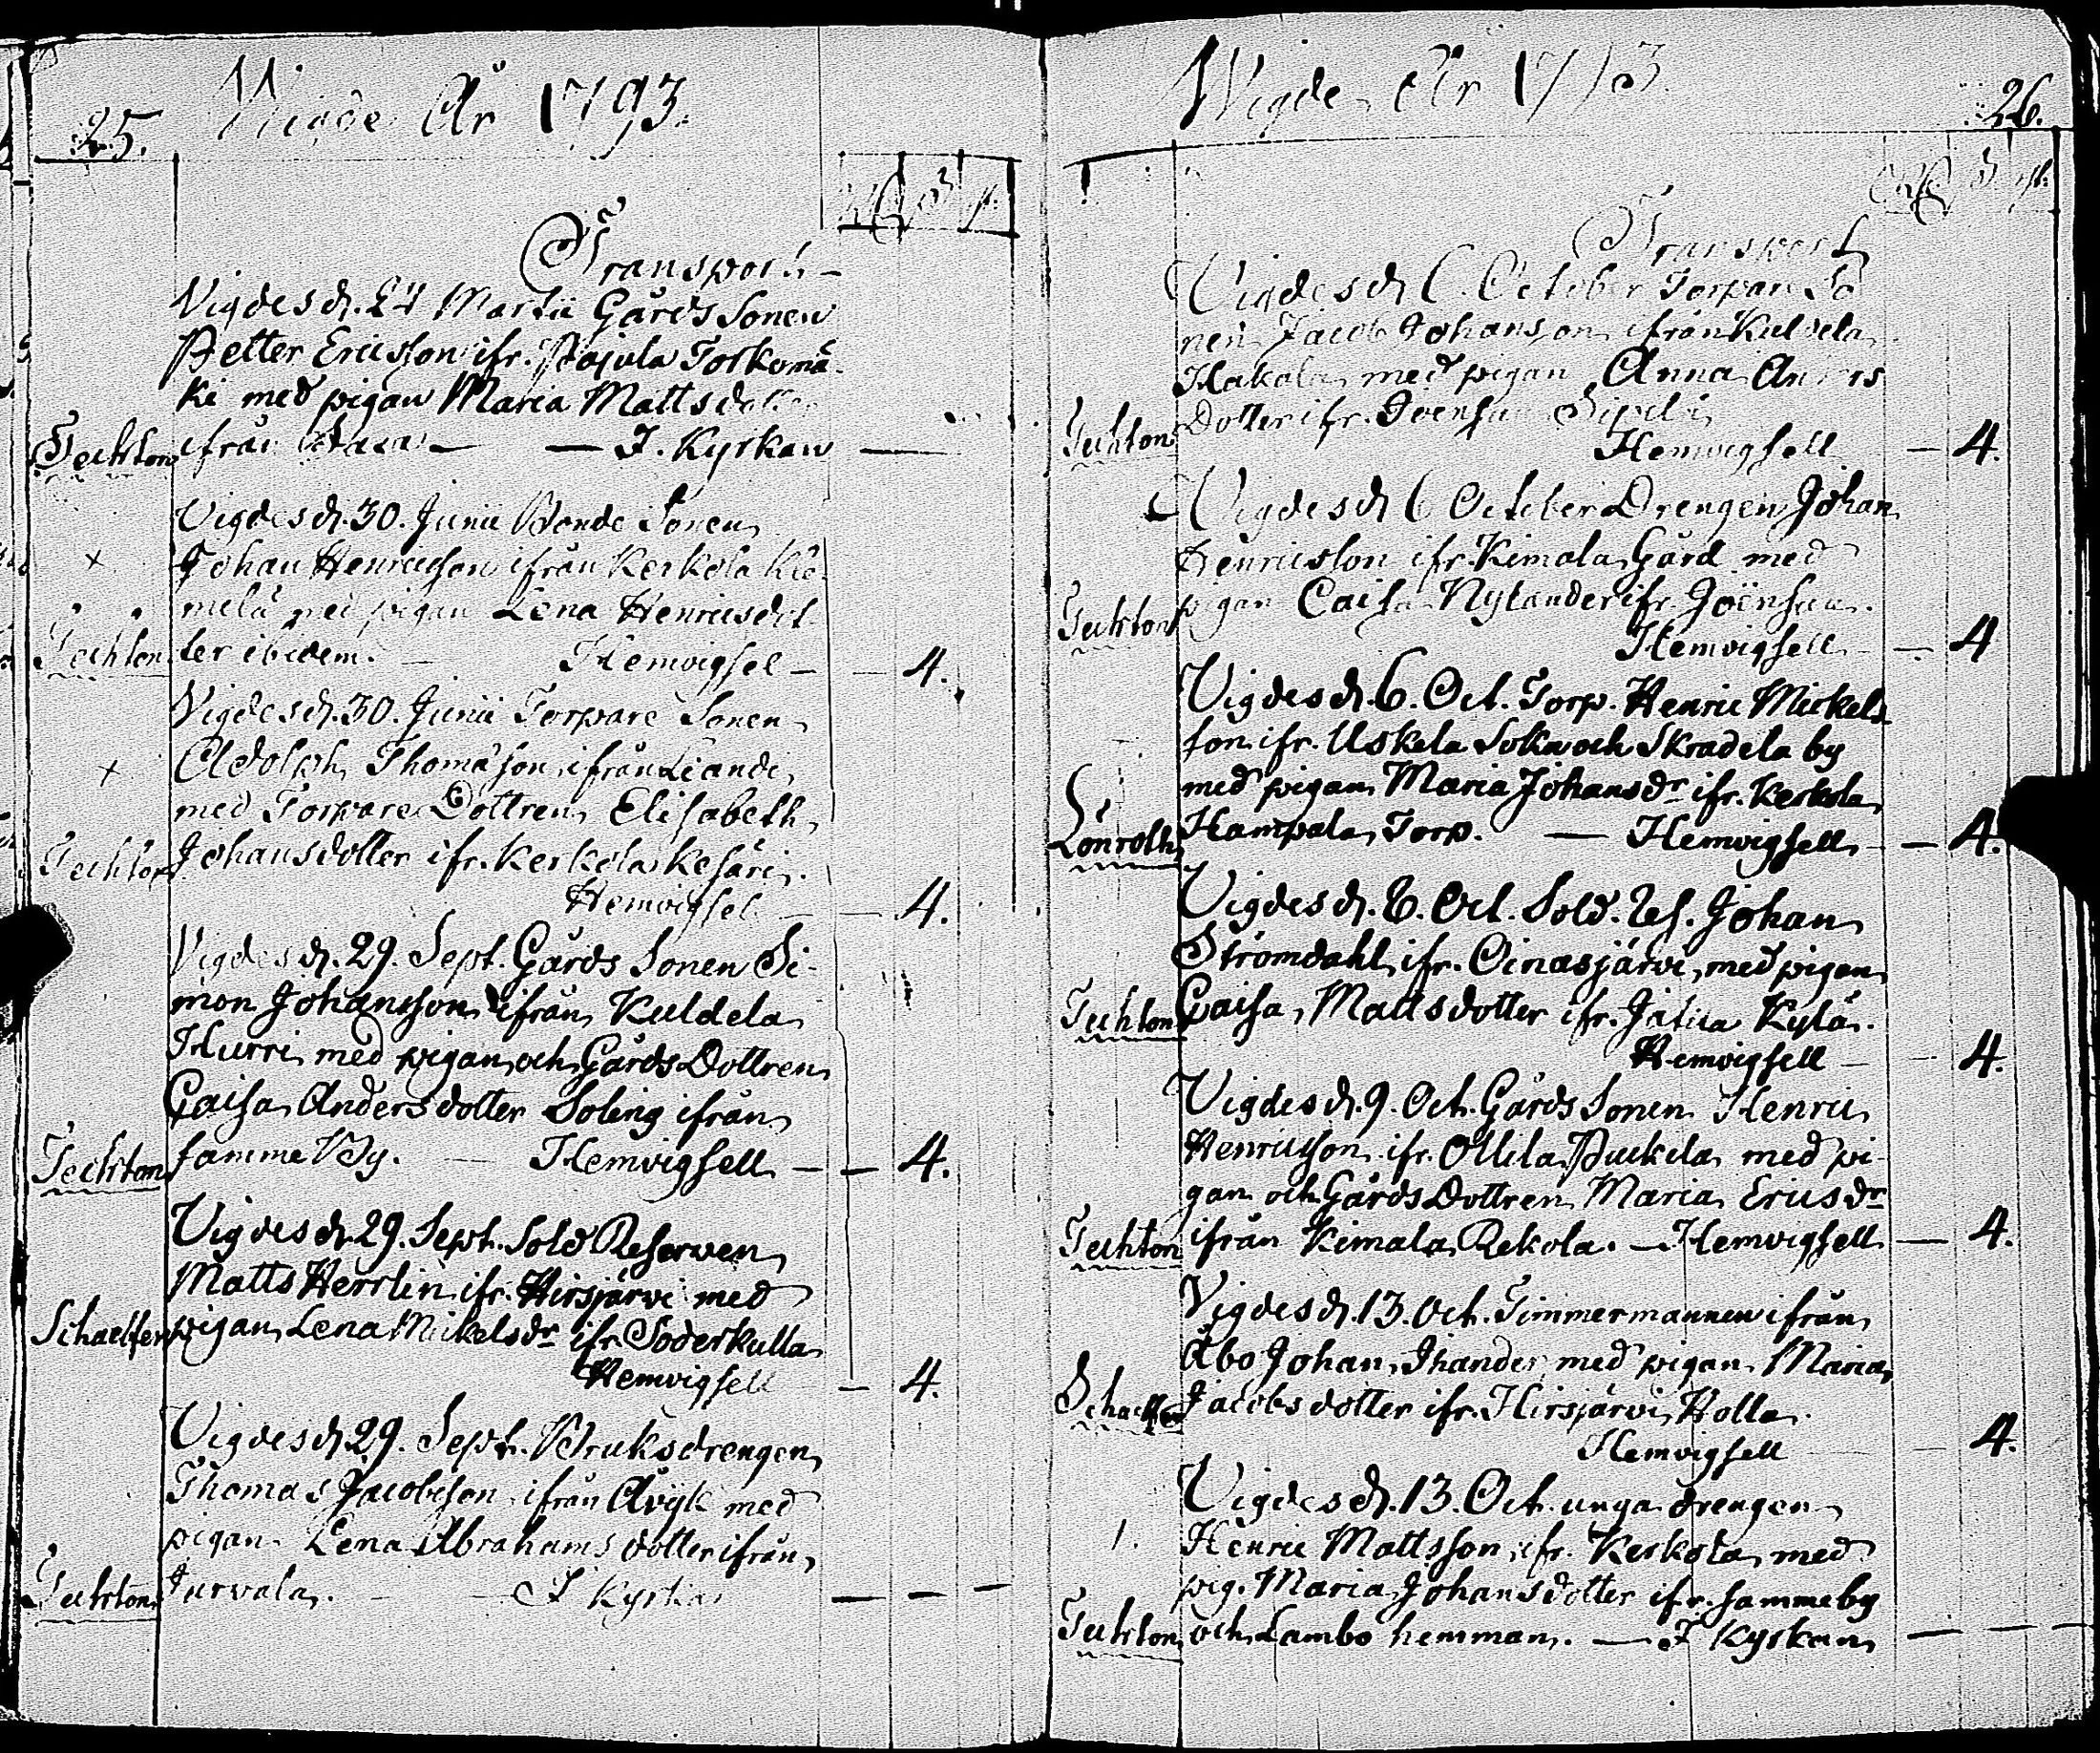 25. Vigde År 1793.
Transport
Vigdes d. 24 Martii Gårds Sonen
Petter Ericsson ifr. Pajula Torkomä-
ki med pigan Maria Matts dotter
Techton ifrån — — I. Kyrkan —
Vigdes d. 30. Junii Bonde Sonen
Johan Henricsson ifrån Kerkola Kie-
melä med pigan Lena Henricsdot-
Techton ter ibidem. — Hemvigsel — — 4.
Vigdes d. 30. Junii Torpare Sonen
Adolph Thomasson ifrån Liandi
med Torpare Dottren Elisabeth
Techton Johansdotter ifr. Kerkola Kesäri.
Hemvigsel — — 4.
Vigdes d. 29. Sept. Gårds Sonen Si-
mon Johansson ifrån Kuldela
Hurri med pigan och Gårds Dottren
Caisa Anders dotter Soling ifrån
Techton samme By. — Hemvigsell — — 4.
Vigdes d. 29. Sept. Sold Reserven
Matts Herrlin ifr. Hirsjärvi med
pigan Lena Mickelsdr ifr. Söderkulla
Hemvigsell — 4.
Vigdes d. 29. Sept. Bruksdrengen
Thomas Jacobsson ifrån Åvijk med
pigan Lena Abrahams dotter ifrån
Techton Turvala. — I Kyrkan — — —
Wigde År 1793 26.
Transport
Vigdes d. 6. October Torpare So-
nen Jacob Johansson ifrån Kuldela
Hakala med pigan Anna Anders
Techton Dotter ifr. Joensuu Sipilä
Hemvigsell — 4.
Vigdes d. 6 October Drengen Johan
Henricsson ifr. Kimala Gård med
Techton pigan Caisa Nylander ifr. Joensuu.
Hemvigsell — 4
Vigdes d. 6. Oct. Torp. Henric Mickels
son ifr. Uskela Sokn och Skradela by
med pigan Maria Johansdr ifr. Kerkola
Lönroth Hampala Torp. — Hemvigsell — 4.
Vigdes d. 6. Oct. Sold. Res. Johan
Strömdahl ifr. Oinasjärvi, med pigan
Techton Caisa Matts dotter ifr. Kylä.
Hemvigsell — 4.
Vigdes d. 9. Oct. Gårds Sonen Henric
Henricsson ifr. Ollila Puckila med pi-
gan och Gårds Dottren Maria Ericsdr
Techton ifrån Kimala Rekola. — Hemvigsell — 4.
Vigdes d. 13. Oct. Timmermannen ifrån
Åbo Johan Ihander med pigan Maria
Jacobs dotter ifr. Hirsjärvi Holla.
Hemvigsell — 4.
Vigdes d. 13. Oct. unga drengen
Henric Mattsson ifr. Kerkola med
pig. Maria Johans dotter ifr. samme by
Techton och Lambo hemman. — I Kyrkan — — —